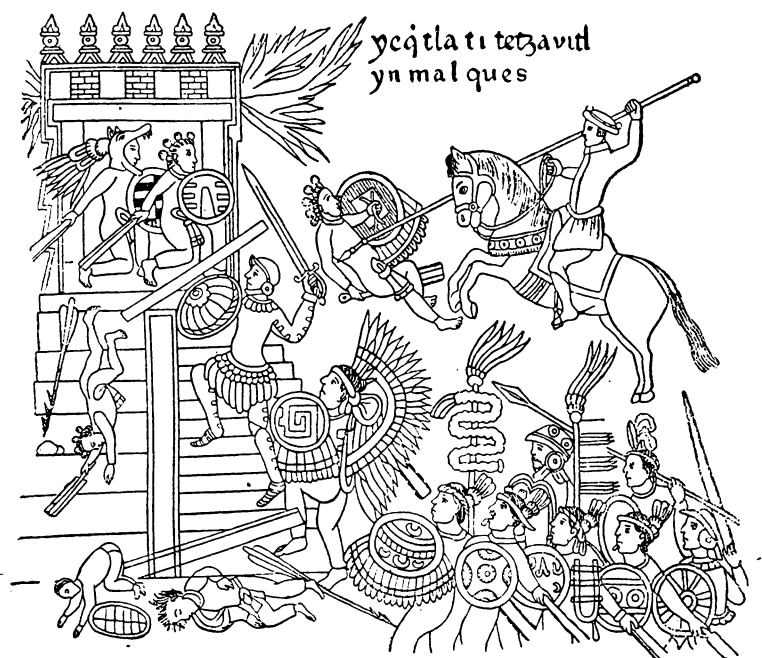 ycq̇tlati tetzavitl
yn malques